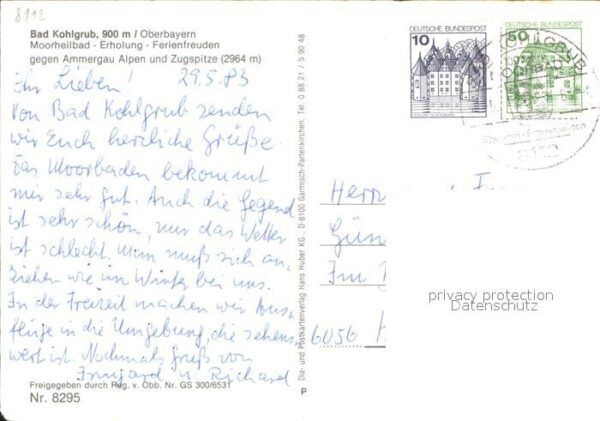 8112
Bad Kohlgrub, 900 m / Oberbayern
Moorheilbad - Erholung - Ferienfreuden
gegen Ammergau Alpen und Zugspitze (2964 m)
Ihr Lieben! 29.5.83
Von Bad Kohlgrub senden
wir Euch herzliche Grüße.
Das Moorbaden bekommt
mir sehr gut. Auch die Gegend
ist sehr schön, nur das Wetter
ist schlecht. Man muß sich an-
ziehen wie im Winter bei uns.
In der Freizeit machen wir Aus-
flüge in die Umgebung, die sehens-
wert ist. Nochmals Gruß von
Irmgard u. Richard
Freigegeben durch Reg. v. Obb. Nr. GS 300/6531
Nr. 8295
Dia- und Postkartenverlag Hans Huber KG., D-8100 Garmisch-Partenkirchen, Tel. 0 88 21 / 5 90 48
P
10
DEUTSCHE BUNDESPOST
50
DEUTSCHE BUNDESPOST
KOHLGRUB
8112
Herrn I.
Gün
Im
6056
privacy protection
Datenschutz